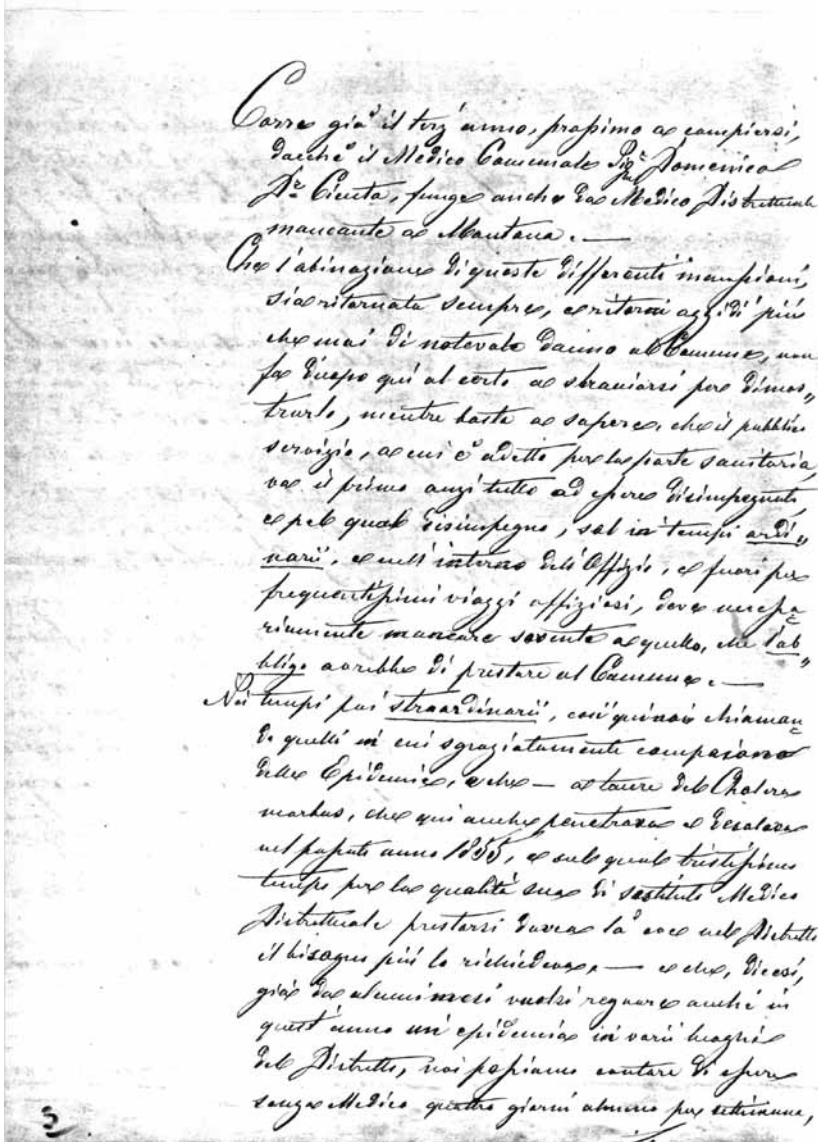 Corre già il terz'anno, prossimo a compiersi,
dacché il Medico Comunale Sigr. Domenico
Dr. Cienta, funge anche da Medico Distrettuale
mancante a Mantana. —
Che l'abinazione di queste differenti mansioni,
sia ritornata sempre, e ritorni oggidì più
che mai di notevole danno al Comune, non
fa d'uopo quì al certo a straniarsi per dimos„
trarlo, mentre basta a sapere, che il pubblico
servizio, a cui è adetto per la parte sanitaria,
va il primo anzi tutto ad essere disimpegnato,
e pel qual disimpegno, sol in tempi ordi„
narii, e nell'interno dell'Offizio, e fuori per
frequentissimi viaggi offiziosi, deve necessa=
riamente mancare sovente a quello, che l'ob„
bligo avrebbe di prestare al Comune. —
Nei tempi poi straordinarii, così quì noi chiaman=
do quelli in cui sgraziatamente compaiono
delle Epidemie, e che — a tacere del Cholera
morbus, che quì anche penetrava e desolava
nel passato anno 1855, e nel quale tristissimo
tempo per la qualità sua di sostituto Medico
Distrettuale prestarsi dovea là ove nel Distretto
il bisogno più lo richiedeva, — e che, dicesi,
già da alcuni mesi vuolsi regnare anche in
quest'anno un'epidemia in varii luoghi
del Distretto, noi possiamo contare di essere
senza Medico quattro giorni almeno per settimana,
3